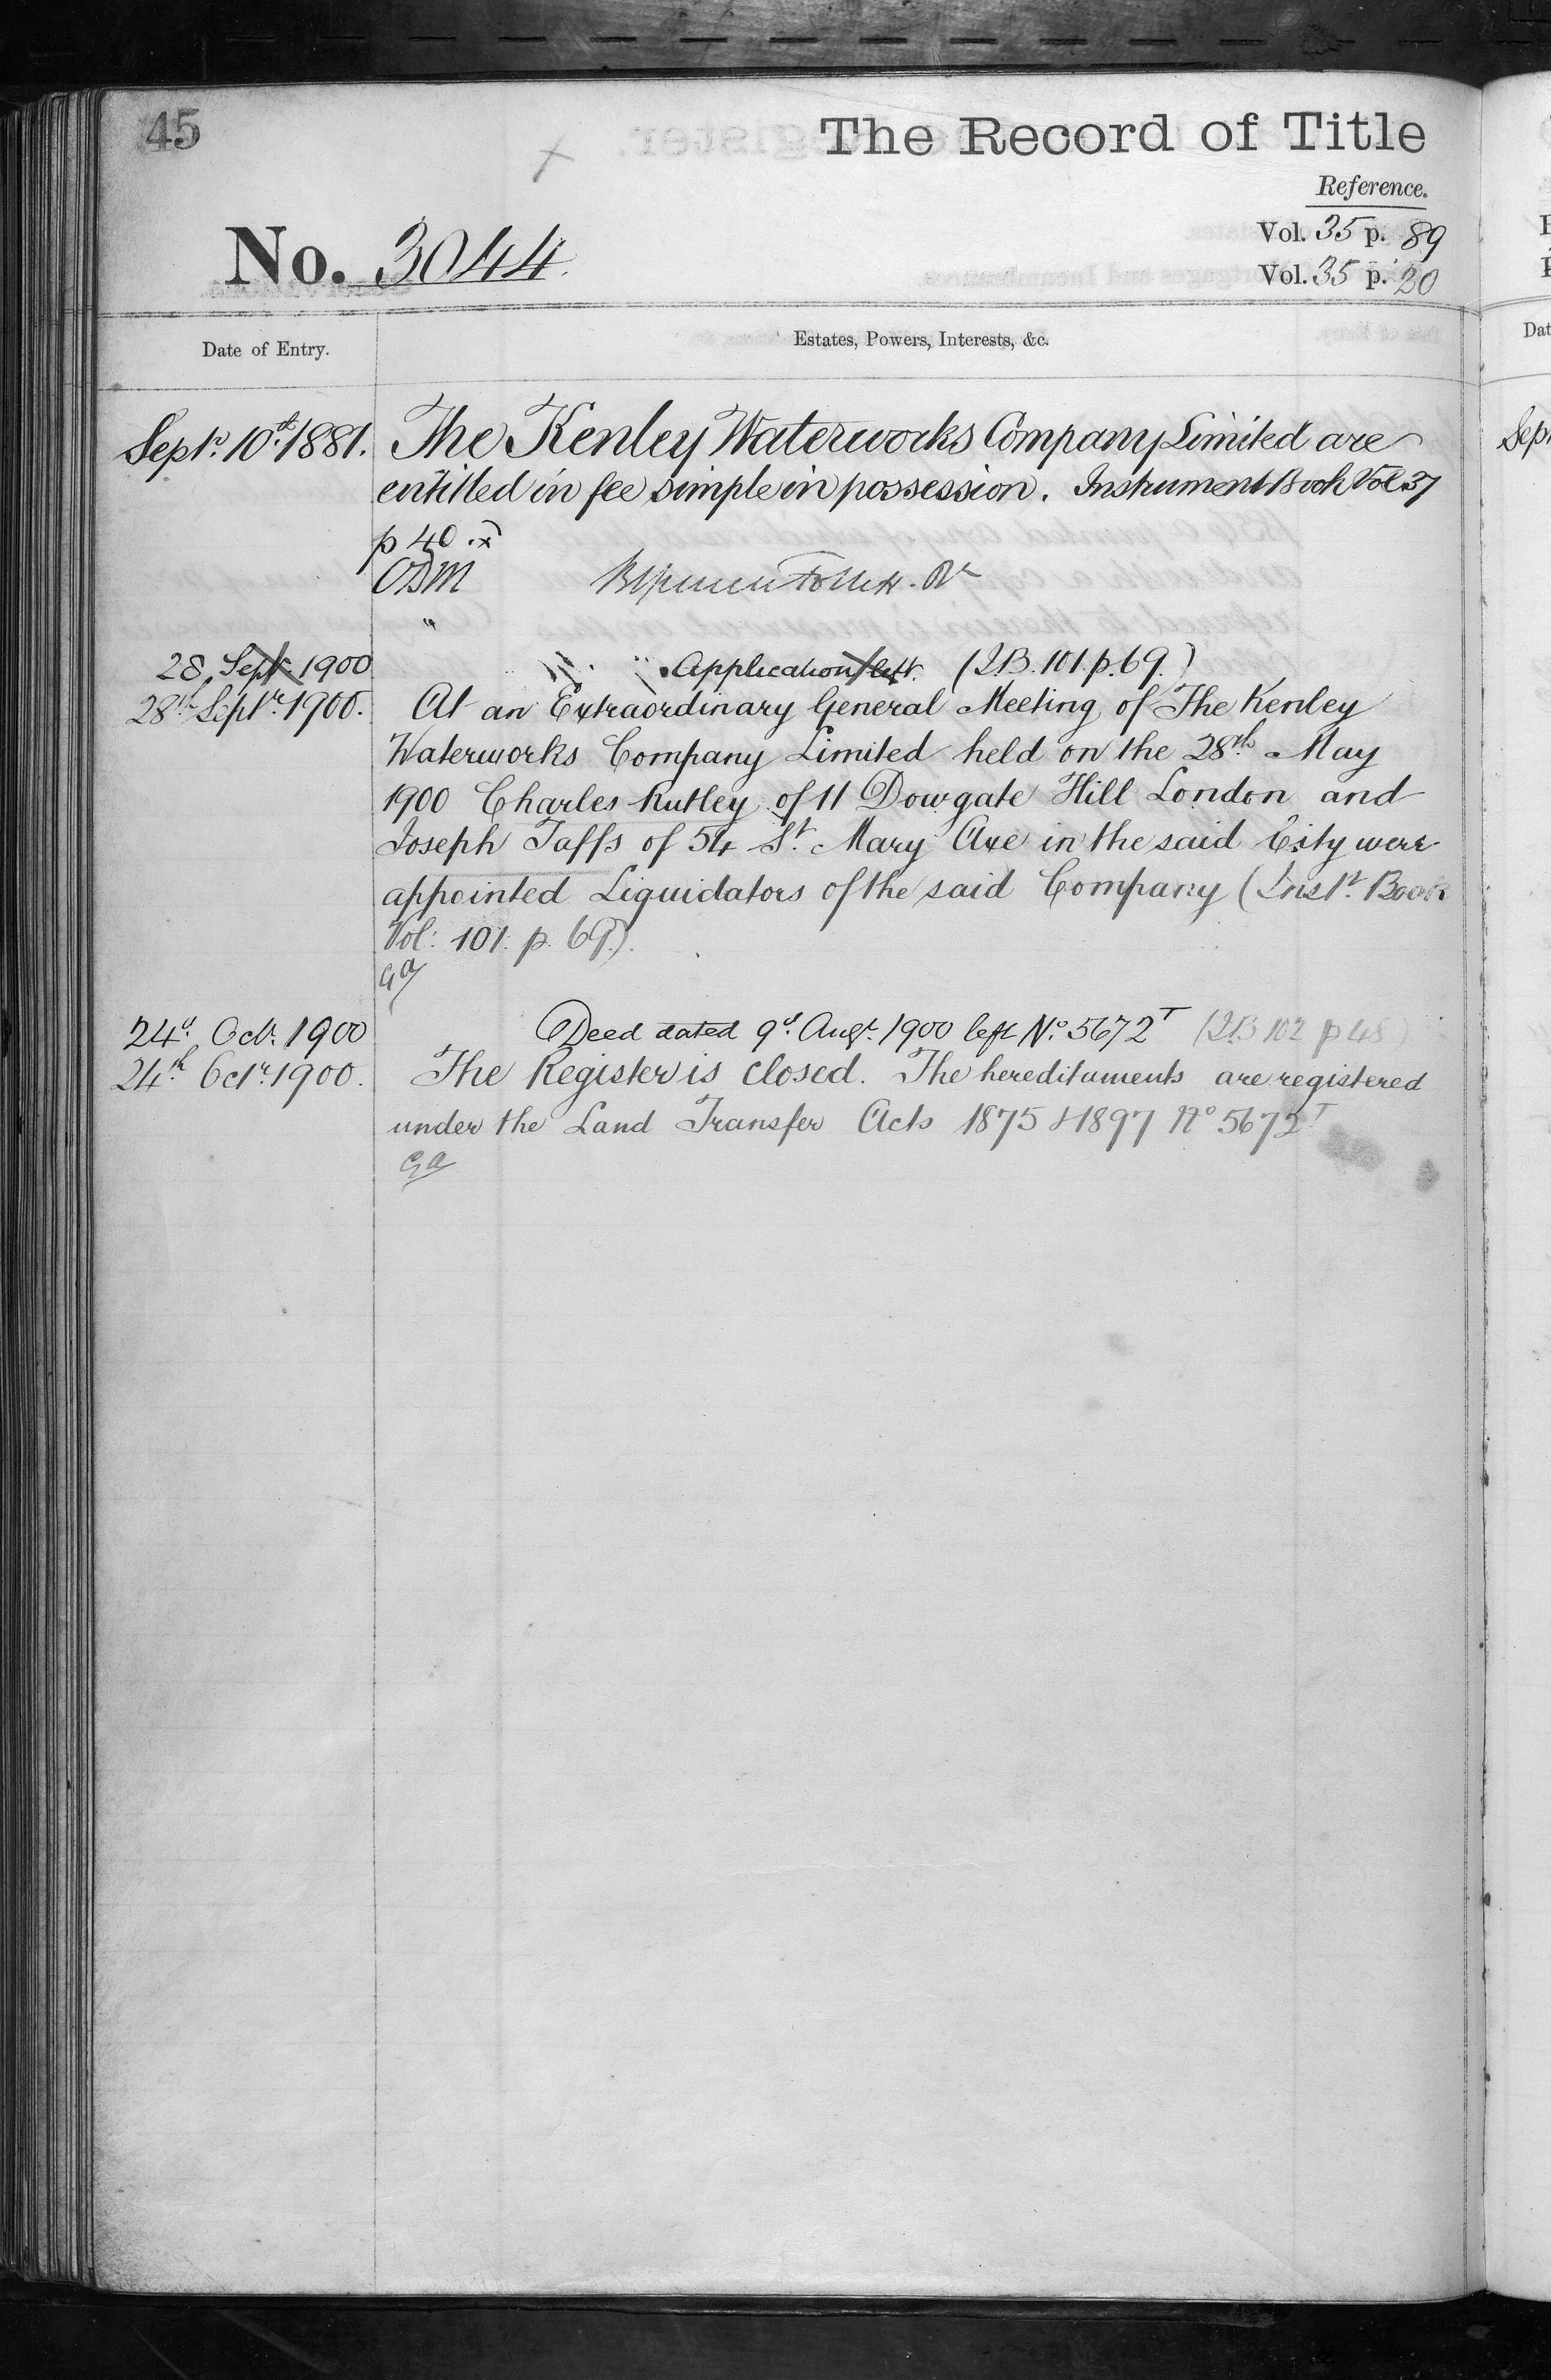 45
The Record of Title
Reference.
Vol. 35 p. 89
No. 3044.
Vol. 35 p. 20
Date of Entry.
Estates, Powers, Interests, &c.
Septr. 10th 1881. The Kenley Waterworks Company Limited are
entitled in fee simple in possession. Instrument Book Vol 37
p 40.
28 Sept. 1900 Application left. (IB. 101. p. 69.)
28th Septr. 1900. At an Extraordinary General Meeting of The Kenley
Waterworks Company Limited held on the 28th May
1900 Charles Rutley of 11 Dowgate Hill London and
Joseph Taffs of 54 St. Mary Axe in the said City were
appointed Liquidators of the said Company (Inst. Book
Vol: 101. p. 69).
GA
24th Oct. 1900 Deed dated 9th Augt. 1900 left No. 5672 T (IB 102 p 48)
24th Octr. 1900. The Register is closed. The hereditaments are registered
under the Land Transfer Acts 1875 & 1897 No 5672 T
GA